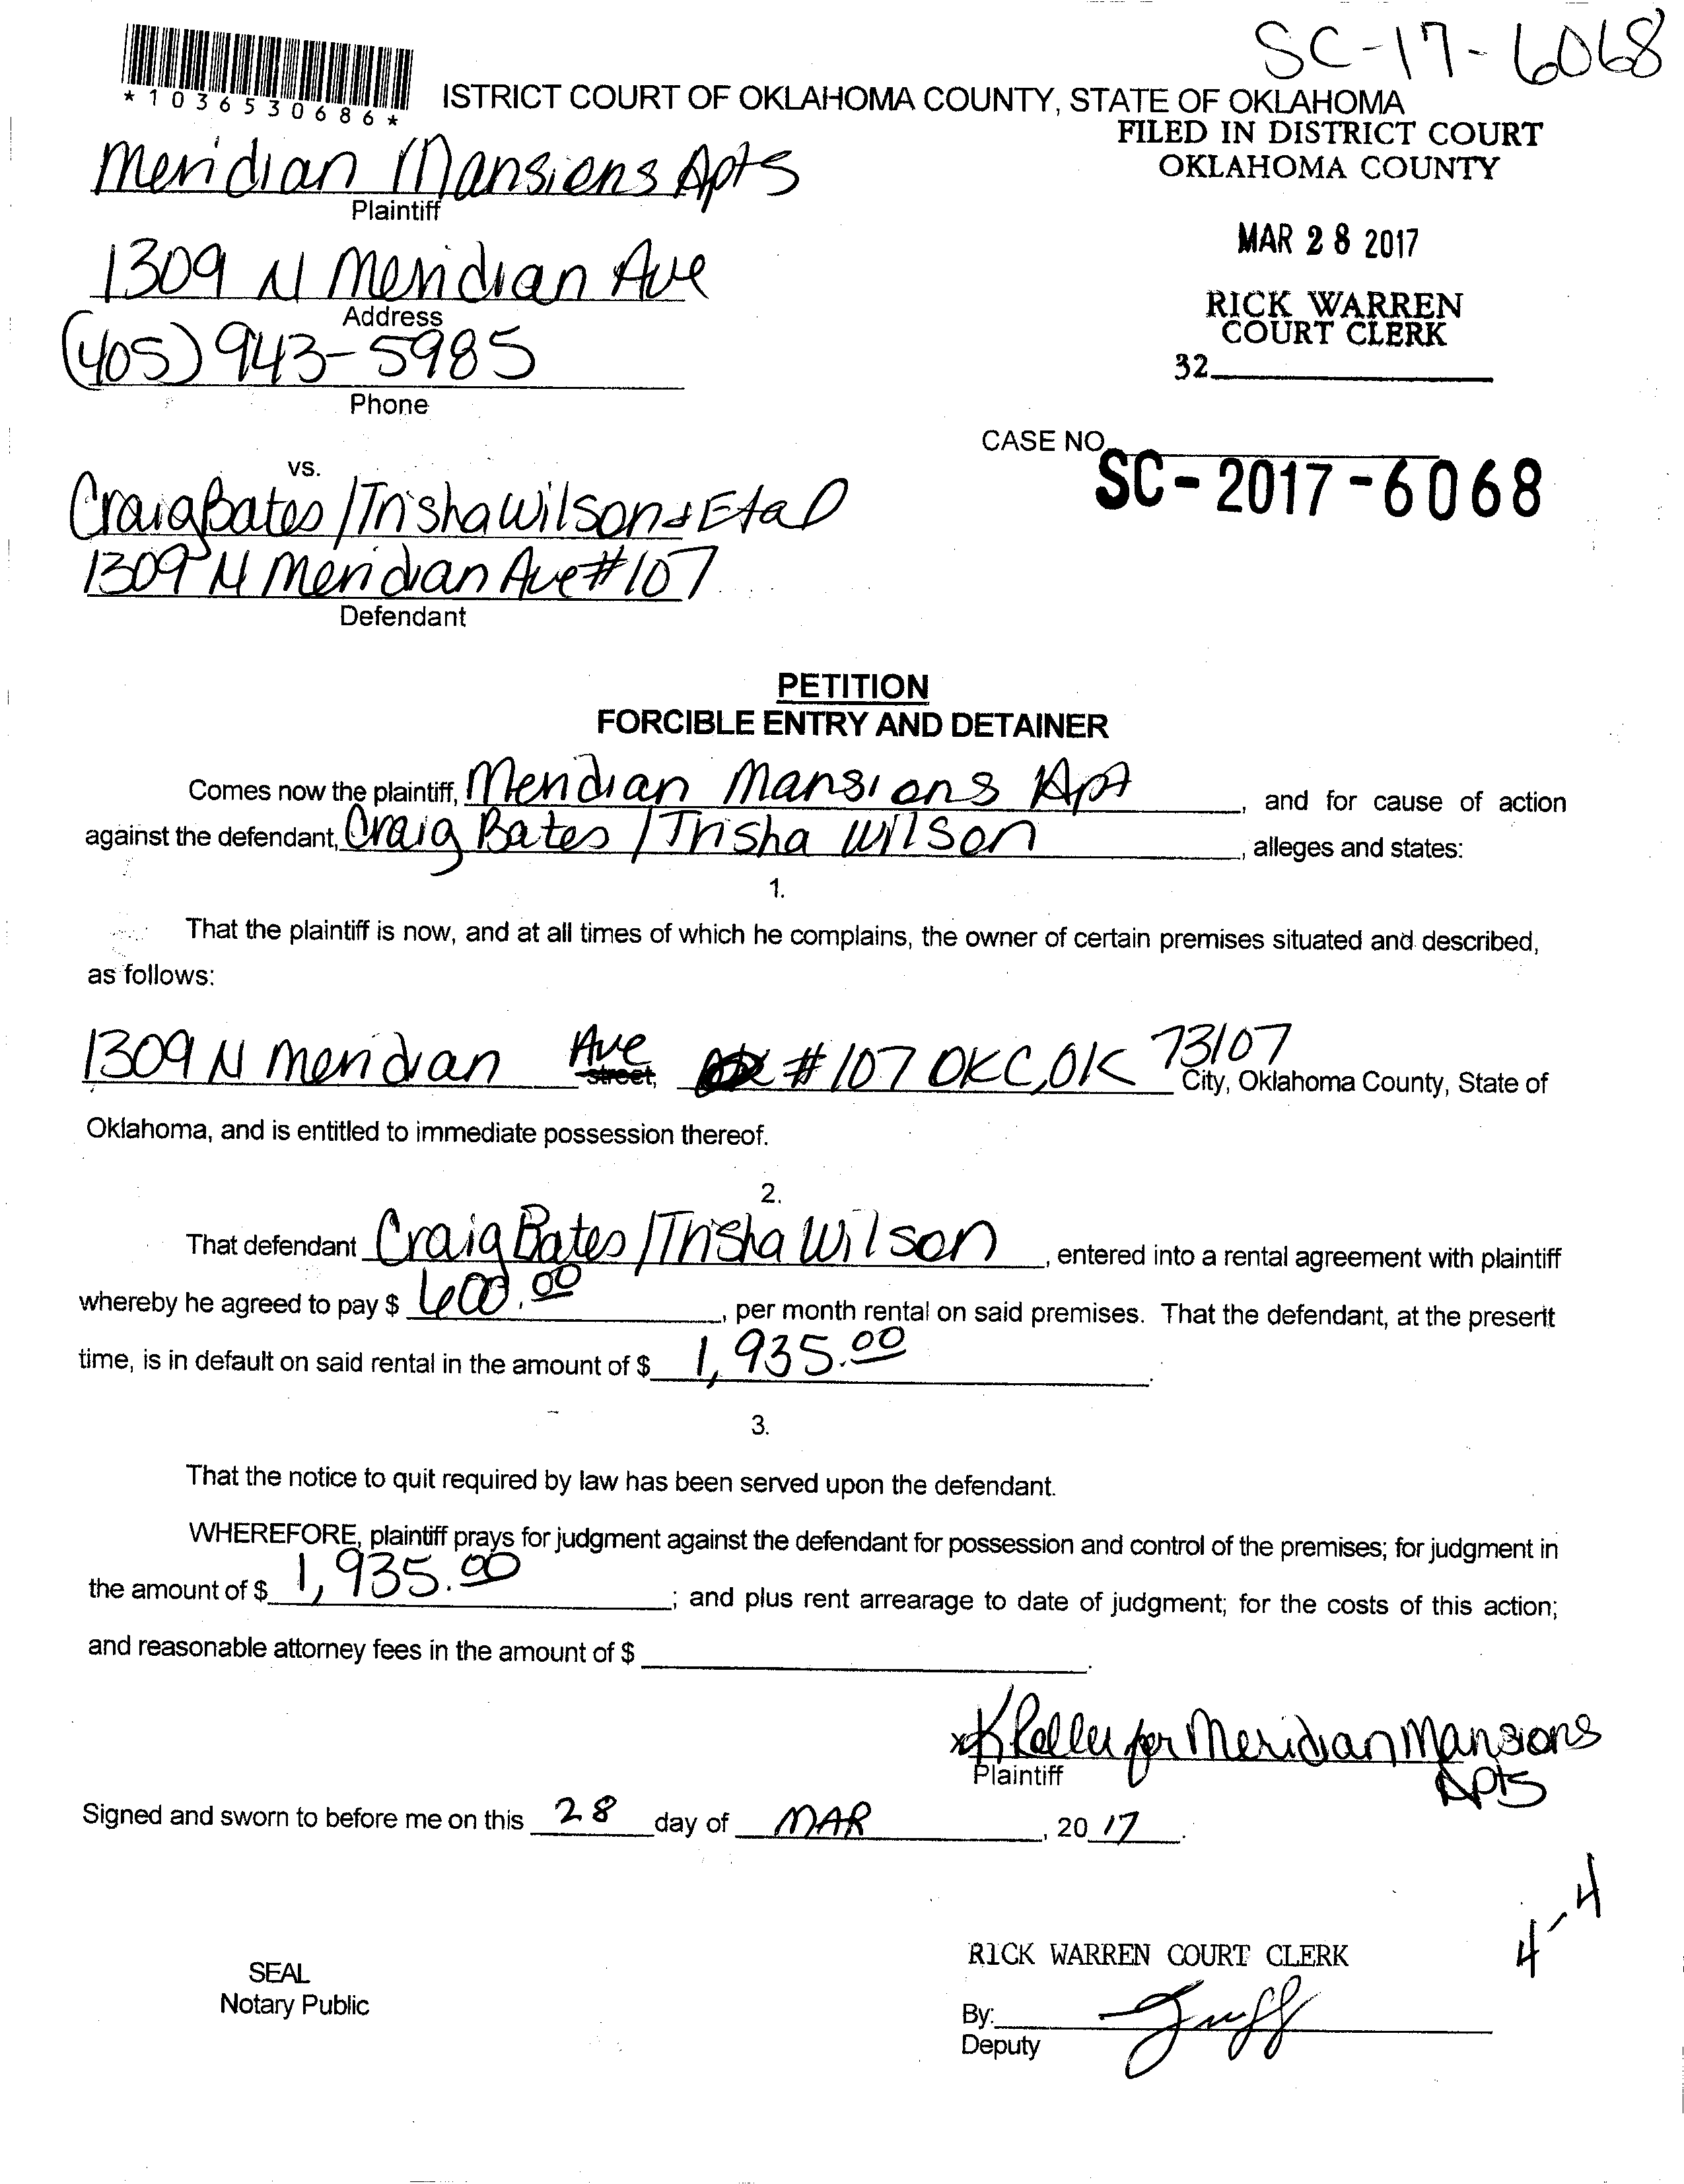 SC-17-6068
*1036530686*
ISTRICT COURT OF OKLAHOMA COUNTY, STATE OF OKLAHOMA
FILED IN DISTRICT COURT
OKLAHOMA COUNTY
Meridian Mansions Apts
Plaintiff
MAR 28 2017
1309 N Meridian Ave
Address
RICK WARREN
COURT CLERK
32
(405) 943-5985
Phone
CASE NO.
SC-2017-6068
vs.
Craig Bates / Trisha Wilson & Etal
1309 N Meridian Ave #107
Defendant
PETITION
FORCIBLE ENTRY AND DETAINER
Comes now the plaintiff, Meridian Mansions Apt, and for cause of action
against the defendant, Craig Bates / Trisha Wilson, alleges and states:
1.
That the plaintiff is now, and at all times of which he complains, the owner of certain premises situated and described,
as follows:
1309 N Meridian Ave street, #107 OKC, OK 73107 City, Oklahoma County, State of
Oklahoma, and is entitled to immediate possession thereof.
2.
That defendant Craig Bates / Trisha Wilson, entered into a rental agreement with plaintiff
whereby he agreed to pay $ 600.00, per month rental on said premises. That the defendant, at the present
time, is in default on said rental in the amount of $ 1,935.00.
3.
That the notice to quit required by law has been served upon the defendant.
WHEREFORE, plaintiff prays for judgment against the defendant for possession and control of the premises; for judgment in
the amount of $ 1,935.00; and plus rent arrearage to date of judgment; for the costs of this action;
and reasonable attorney fees in the amount of $ .
for Meridian Mansions
Apts
Plaintiff
Signed and sworn to before me on this 28 day of MAR, 20 17.
4-4
RICK WARREN COURT CLERK
SEAL
Notary Public
By:
Deputy